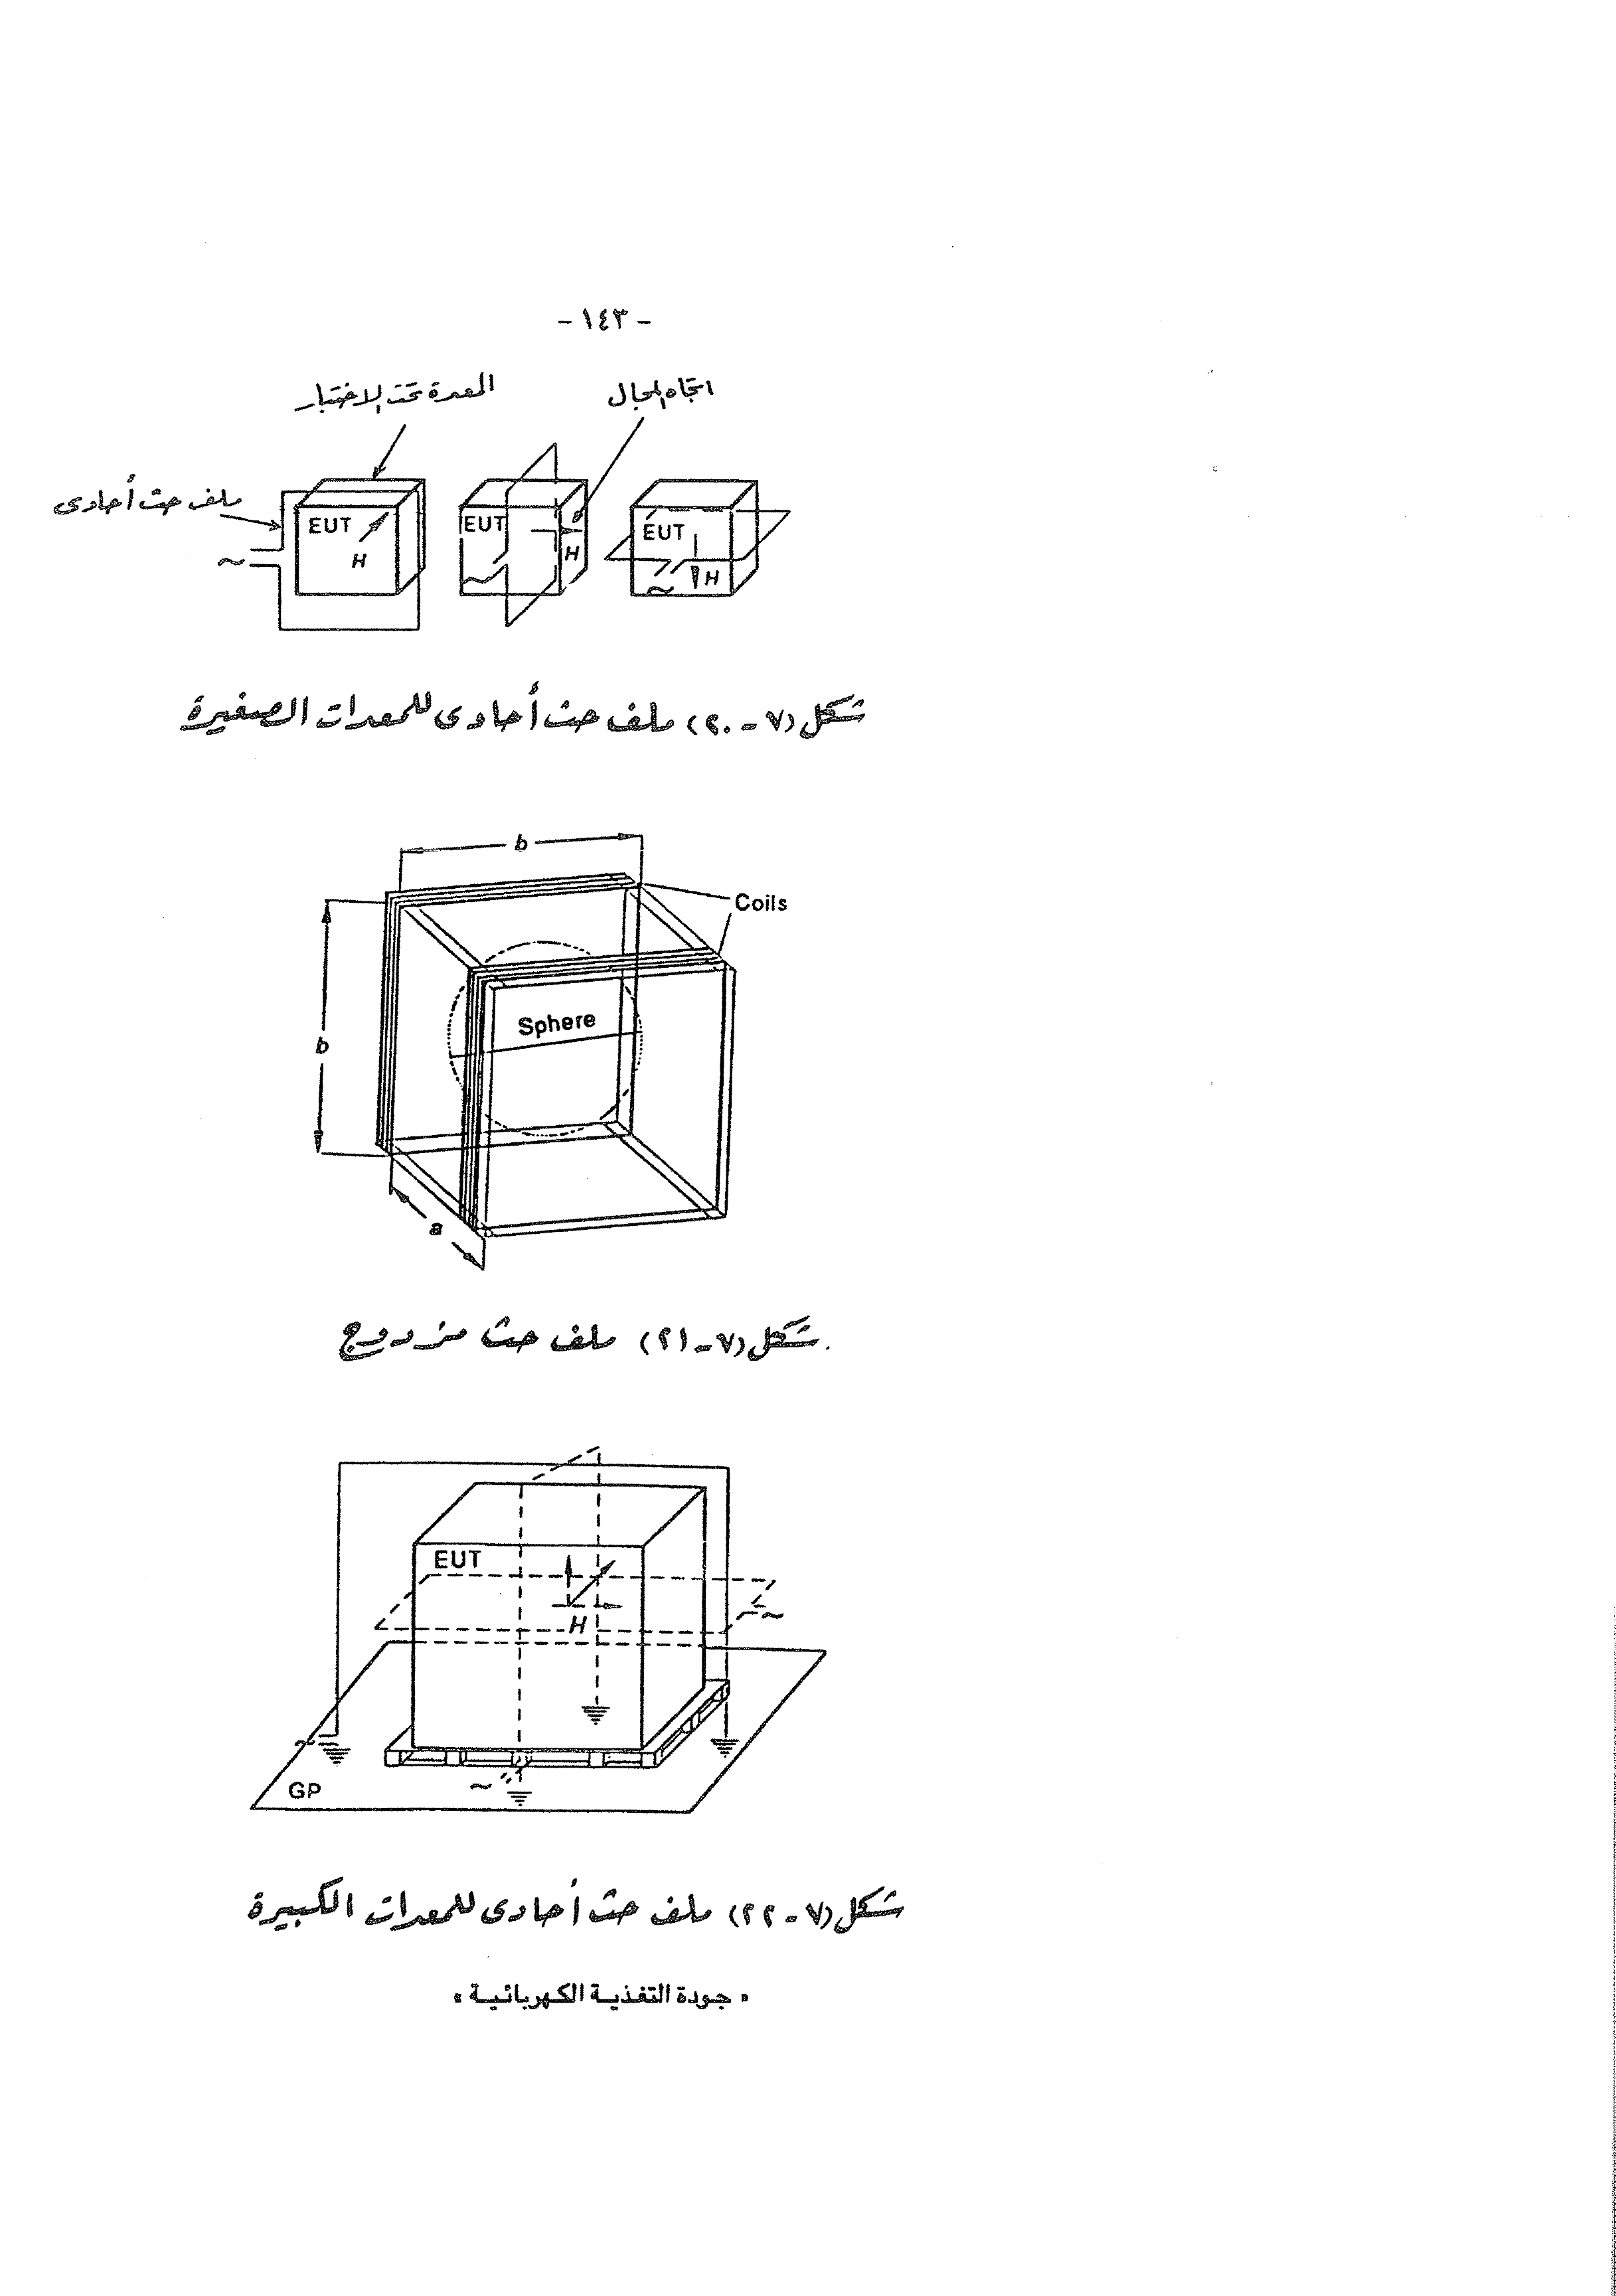 - ١٤٣ -
المعدة تحت الاختبار
اتجاه المجال
ملف حث أحادى
EUT
H
~
EUT
H
~
EUT
H
~
شكل (٧-٢٠) ملف حث أحادى للمعدات الصغيرة
b
Coils
Sphere
b
a
شكل (٧-٢١) ملف حث مزدوج
EUT
H
~
~
~
GP
شكل (٧-٢٢) ملف حث أحادى للمعدات الكبيرة
« جودة التغذية الكهربائية »